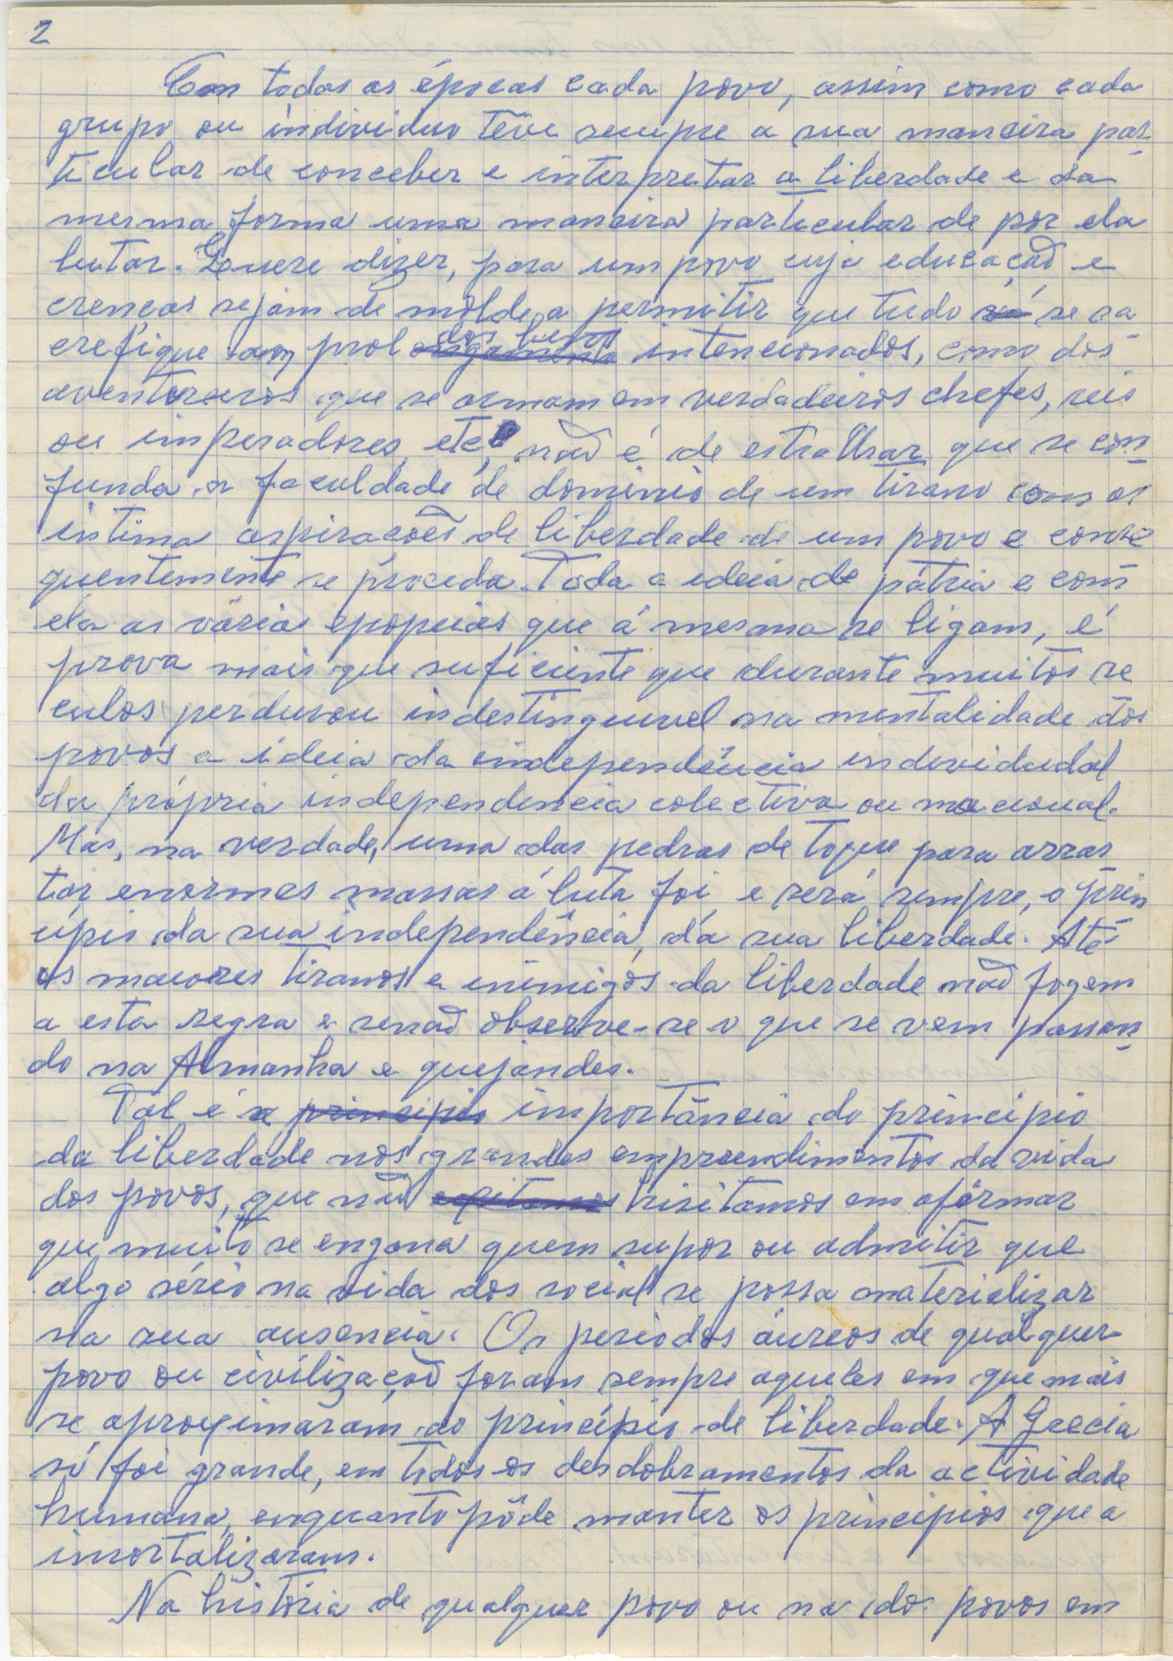 2
Em todas as épocas cada povo, assim como cada
grupo ou individuo têve sempre a sua maneira par
ticular de conceber e interpretar a liberdade e da
mesma forma uma maneira particular de por ela
lutar. Quere dizer, para um povo cuja educação e
crenças sejam de molde a permitir que tudo se sa
crefique em prol dos bens intencionados, como dos
aventureiros que se armam em verdadeiros chefes, reis
ou imperadores, etc, não é de estralhar que se con
funda a faculdade de dominio de um tirano com as
intima aspirações de liberdade de um povo e conse
quentemente se proceda. Toda a ideia de pátria e com
ela as vária epopeias que á mesma se ligam, é
prova mais que suficiente que durante muitos se
culos perdurou indestinguivel na mentalidade dos
povos a ideia da independência individual
da própria independencia colectiva ou nacional.
Mas, na verdade, uma das pedras de toque para arras
tar enormes massas á luta foi e será sempre, o prin
cipio da sua independência, da sua liberdade. Até
os maiores tiranos e inimigos da liberdade não fogem
a esta regra e senão observe-se o que se vem passan
do na Almanha e quejandes.
Tal é a importância do principio
da liberdade nos grandes empreendimentos da vida
dos povos, que não hisitamos em afirmar
que muito se engana quem supor ou admitir que
algo sério na vida dos social se possa materializar
na sua ausencia. Os periodos áureos de qualquer
povo ou civilização foram sempre aqueles em que mais
se aproximaram do principio de liberdade. A Grecia
só foi grande, em todos os desdobramentos da actividade
humana, enquanto pôde manter os principios que a
imortalizaram.
Na história de qualquer povo ou na dos povos em